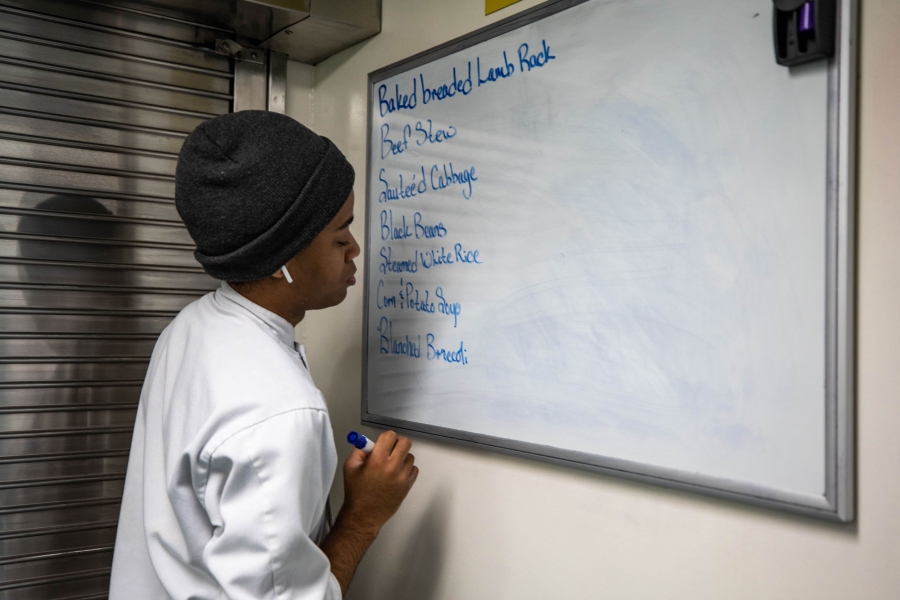 Baked breaded Lamb Rack
Beef Stew
Sauteéd Cabbage
Black Beans
Steamed White Rice
Corn & Potato Soup
Blanched Broccoli